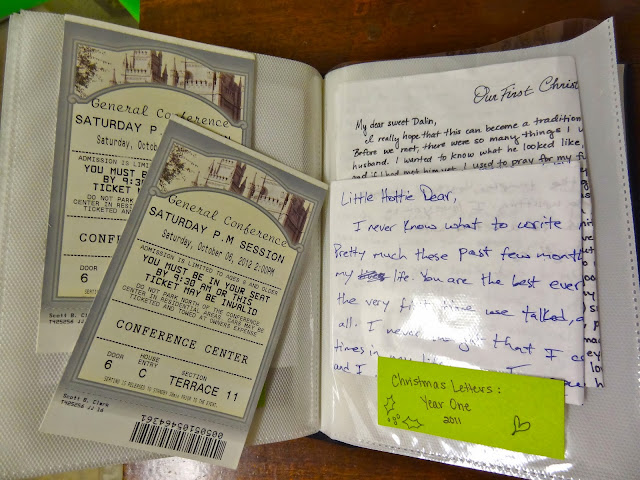 General Conference
SATURDAY P.
Saturday, Octob
ADMISSION IS LIMITED
YOU MUST B
BY 9:30
TICKET M
DO NOT PARK
CENTER IN RESI
TICKETED
CONFE
DOOR
6
Scott B. Cl
T425256 JJ 1
General Conference
SATURDAY P.M SESSION
Saturday, October 06, 2012 2:00PM
ADMISSION IS LIMITED TO AGES 8 AND OLDER
YOU MUST BE IN YOUR SEAT
BY 9:30 AM OR THIS
TICKET MAY BE INVALID
DO NOT PARK NORTH OF THE CONFERENCE
CENTER IN RESIDENTIAL AREAS. CARS MAY BE
TICKETED AND TOWED AT OWNERS EXPENSE.
CONFERENCE CENTER
DOOR HOUSE ENTRY SECTION
6 C TERRACE 11
SEATING IS RELEASED TO STANDBY 30min PRIOR TO THE EVENT.
Scott B. Clark
T425256 JJ 16
Our First Christ
My dear sweet Dalin,
I really hope that this can become a tradition
Before we met, there were so many things I w
husband. I wanted to know what he looked like,
and if I had met him yet. I used to pray for my fu
Little Hottie Dear,
I never know what to write
Pretty much these past few month
my life. You are the best ever
the very first time we talked, a
all. I never thought that I co
times in my life
and I
Christmas Letters:
Year One
2011